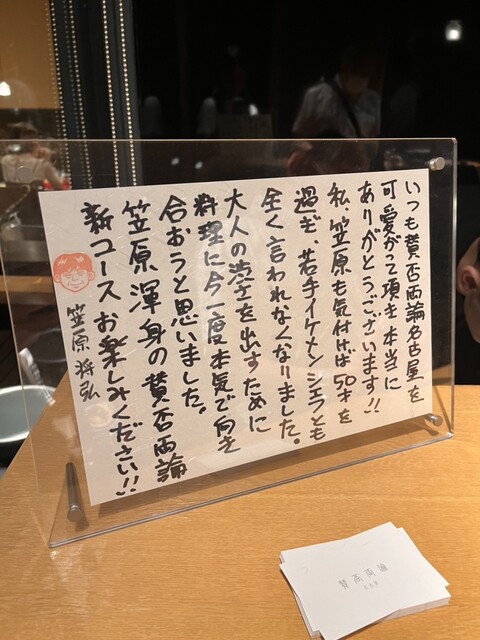 いつも賛否両論名古屋を
可愛がって頂き本当に
ありがとうございます!!
私、笠原も気付けば50才を
過ぎ、若手イケメンシェフとも
全く言われなくなりました。
大人の渋さを出すために
料理に今一度本気で向き
合おうと思いました。
笠原渾身の賛否両論
新コースお楽しみください!!
笠原将弘
賛否両論